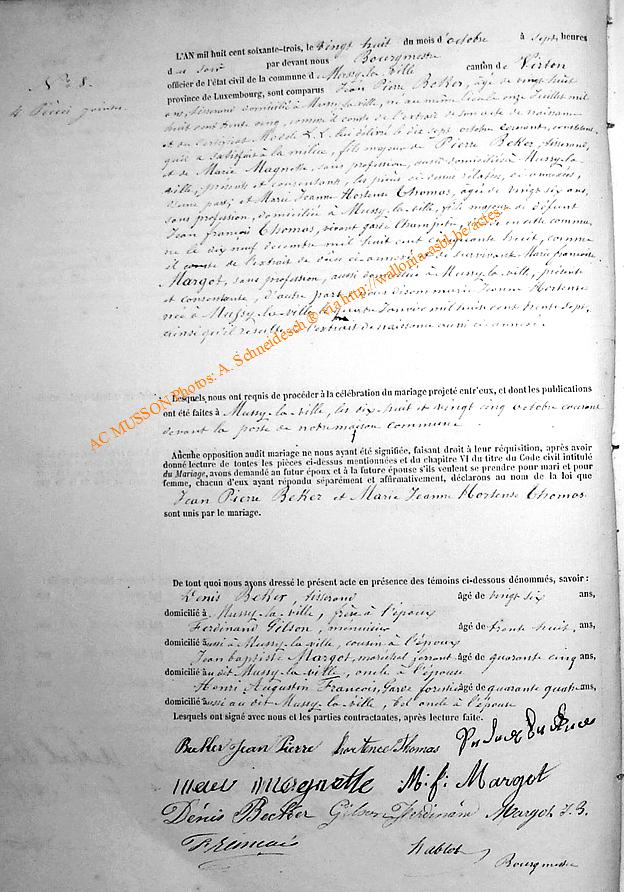 N° 8.
4 Pièces jointes.
L'AN mil huit cent soixante-trois, le vingt huit du mois d'octobre à sept heures
du soir par devant nous Bourgmestre
officier de l'état civil de la commune de Mussy-la-ville canton de Virton
province de Luxembourg, sont comparus Jean Pierre Beker, âgé de vingt huit
ans, tisserand domicilié à Mussy-la-ville, né au même lieu le onze Juillet mil
huit cent trente cinq, comme il conste de l'extrait de son acte de naissance
et du certificat Modèle L.L. lui délivré le dix sept octobre courant, constatant
qu'il a satisfait à la milice, fils majeur de Pierre Beker, tisserand,
et de Marie Magnette, sans profession, aussi domiciliés à Mussy-la-
ville, présents et consentants, les pièces ci-dessus relatées, ci-annexées,
d'une part; et Marie Jeanne Hortense Thomas, âgée de vingt six ans,
sans profession, domiciliée à Mussy-la-ville, fille majeure de défunt
Jean françois Thomas, vivant garde Champêtre, décédé en cette commune
le dix neuf décembre mil huit cent cinquante huit, comme
il conste de l'extrait de décès ci-annexé et de survivante Marie françoise
Margot, sans profession, aussi domiciliée à Mussy-la-ville, présente
et consentante, d'autre part, nous disons marie Jeanne Hortense
née à Mussy-la-ville le quatre Janvier mil huit cent trente sept,
ainsi qu'il résulte de l'extrait de naissance aussi ci-annexé.
AC MUSSON Photos: A. Schneidesch® via http://wallonia-asbl.be/actes
Lesquels nous ont requis de procéder à la célébration du mariage projeté entr'eux, et dont les publications
ont été faites à Mussy-la-ville, les dix huit et vingt cinq octobre courant
devant la porte de notre maison commune.
Aucune opposition audit mariage ne nous ayant été signifiée, faisant droit à leur réquisition, après avoir
donné lecture de toutes les pièces ci-dessus mentionnées et du chapitre VI du titre du Code civil intitulé
du Mariage, avons demandé au futur époux et à la future épouse s'ils veulent se prendre pour mari et pour
femme, chacun d'eux ayant répondu séparément et affirmativement, déclarons au nom de la loi que
Jean Pierre Beker et Marie Jeanne Hortense Thomas
sont unis par le mariage.
De tout quoi nous avons dressé le présent acte en présence des témoins ci-dessous dénommés, savoir :
Denis Beker, tisserand âgé de vingt six ans,
domicilié à Mussy-la-ville, frère à l'époux
Ferdinand Gilson, menuisier âgé de trente huit, ans,
domicilié aussi à Mussy-la-ville, cousin à l'époux
Jean baptiste Margot, maréchal ferrant âgé de quarante cinq ans,
domicilié au dit Mussy-la-ville, oncle à l'épouse
Henri Augustin François, Garde forestier âgé de quarante quatre ans,
domicilié aussi au dit Mussy-la-ville, bel oncle à l'épouse
Lesquels ont signé avec nous et les parties contractantes, après lecture faite.
Becker Jean Pierre hortence Thomas
magnette M. f. Margot
Dénis Becker Gilson Ferdinand Margot J. B.
François hablot
Bourgmestre